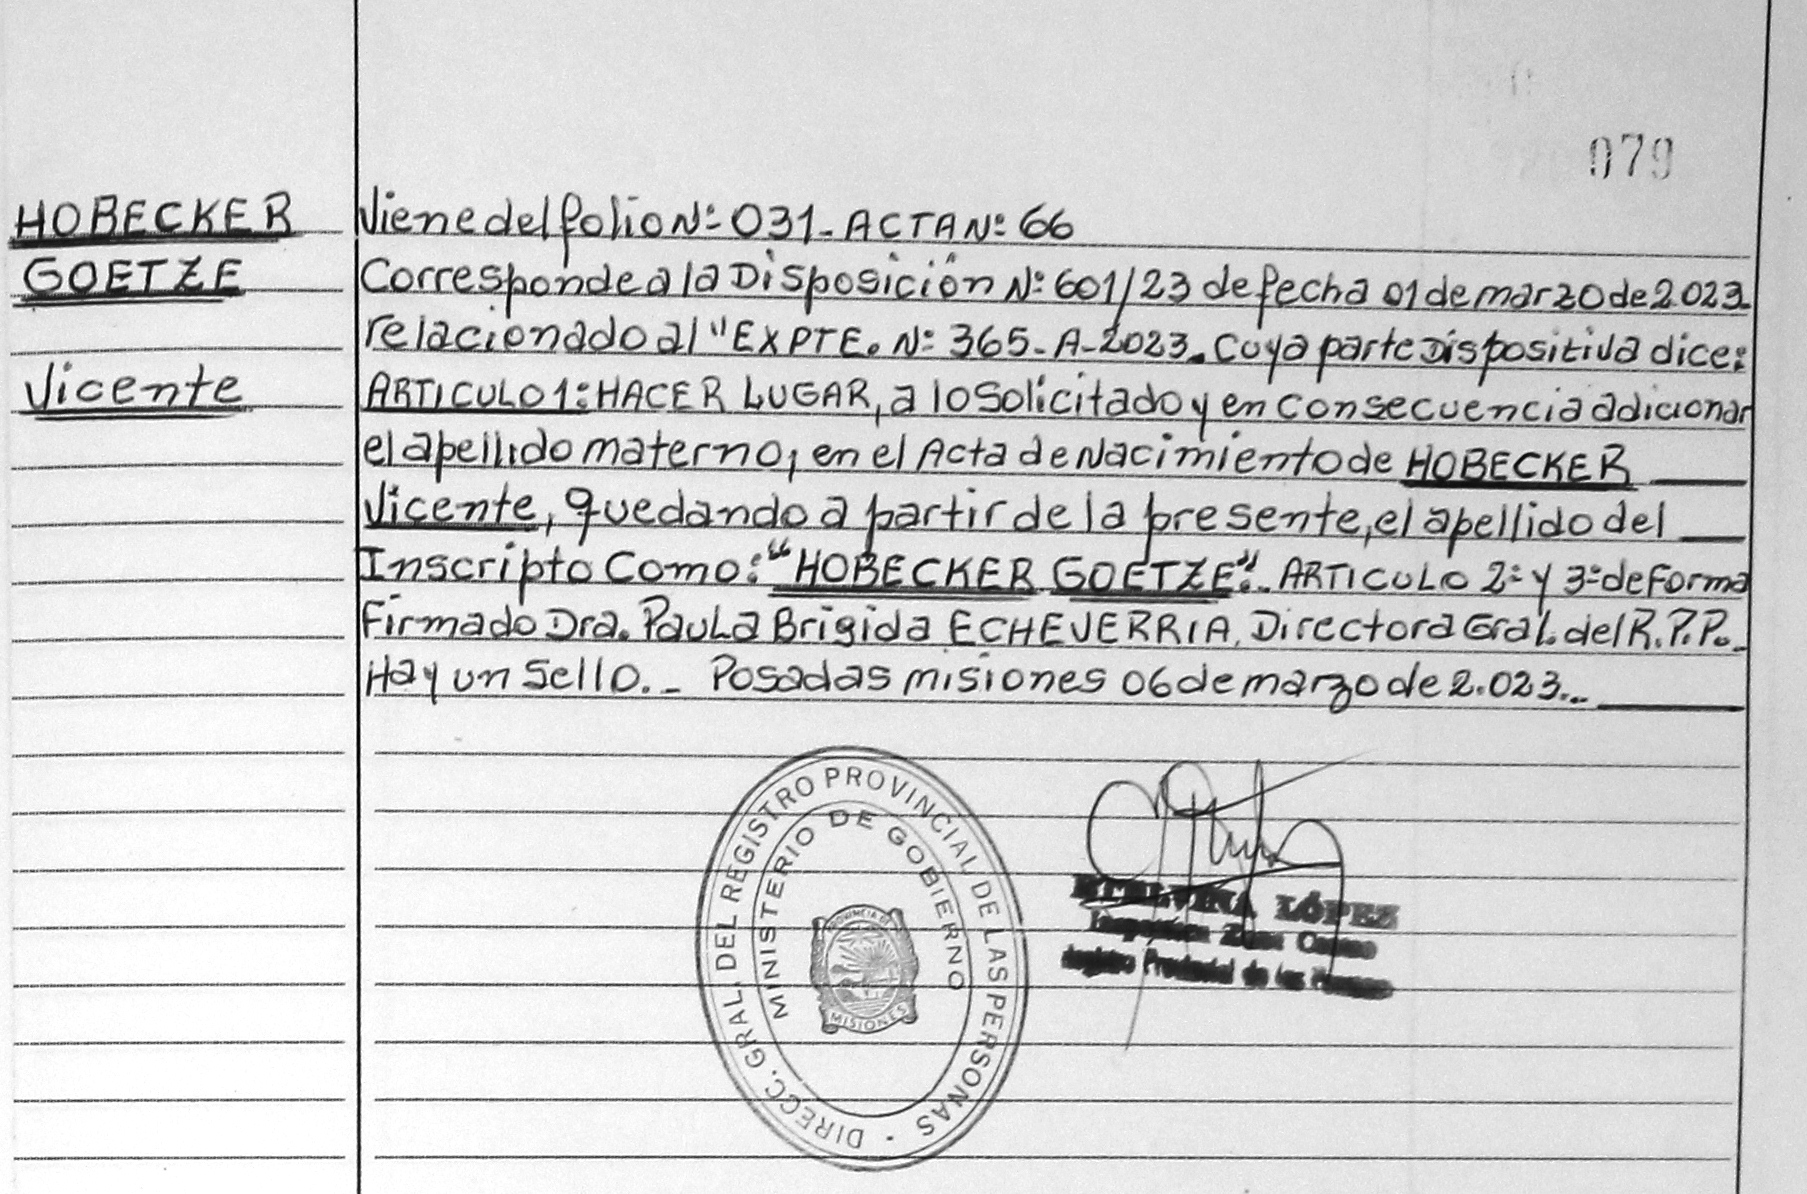 079
HOBECKER
GOETZE
Vicente
Viene del folio Nº 031 - ACTA Nº 66
Corresponde a la Disposición Nº 601/23 de fecha 01 de marzo de 2.023.
relacionado al "EXPTE. Nº 365-A-2023. Cuya parte Dispositiva dice:
ARTICULO 1: HACER LUGAR, a lo Solicitado y en Consecuencia adicionar
el apellido materno, en el Acta de Nacimiento de HOBECKER
Vicente, quedando a partir de la presente, el apellido del
Inscripto Como: "HOBECKER GOETZE". ARTICULO 2º y 3º de Forma
Firmado Dra. Paula Brigida ECHEVERRIA, Directora Gral. del R.P.P.
Hay un Sello. - Posadas misiones 06 de marzo de 2.023.-
DIRECC. GRAL. DEL REGISTRO PROVINCIAL DE LAS PERSONAS
MINISTERIO DE GOBIERNO
PROVINCIA DE
MISIONES
LÓPEZ
Zona
Registro Provincial de las